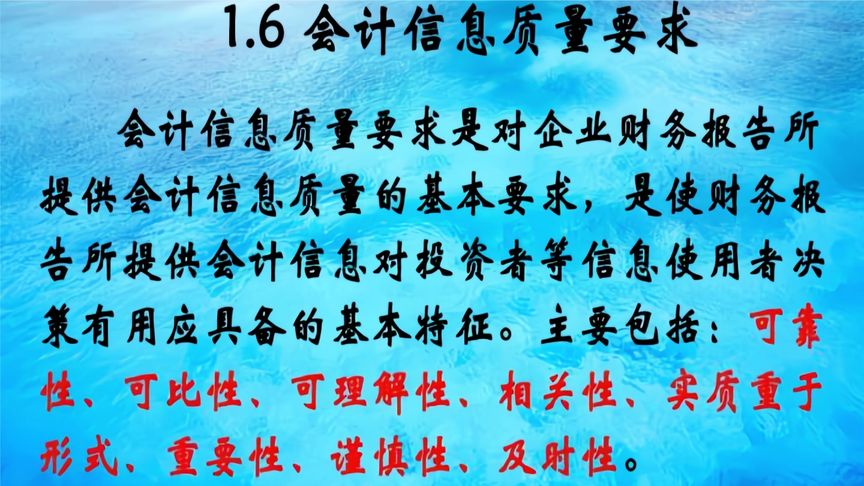 1.6 会计信息质量要求
会计信息质量要求是对企业财务报告所
提供会计信息质量的基本要求，是使财务报
告所提供会计信息对投资者等信息使用者决
策有用应具备的基本特征。主要包括：可靠
性、可比性、可理解性、相关性、实质重于
形式、重要性、谨慎性、及时性。